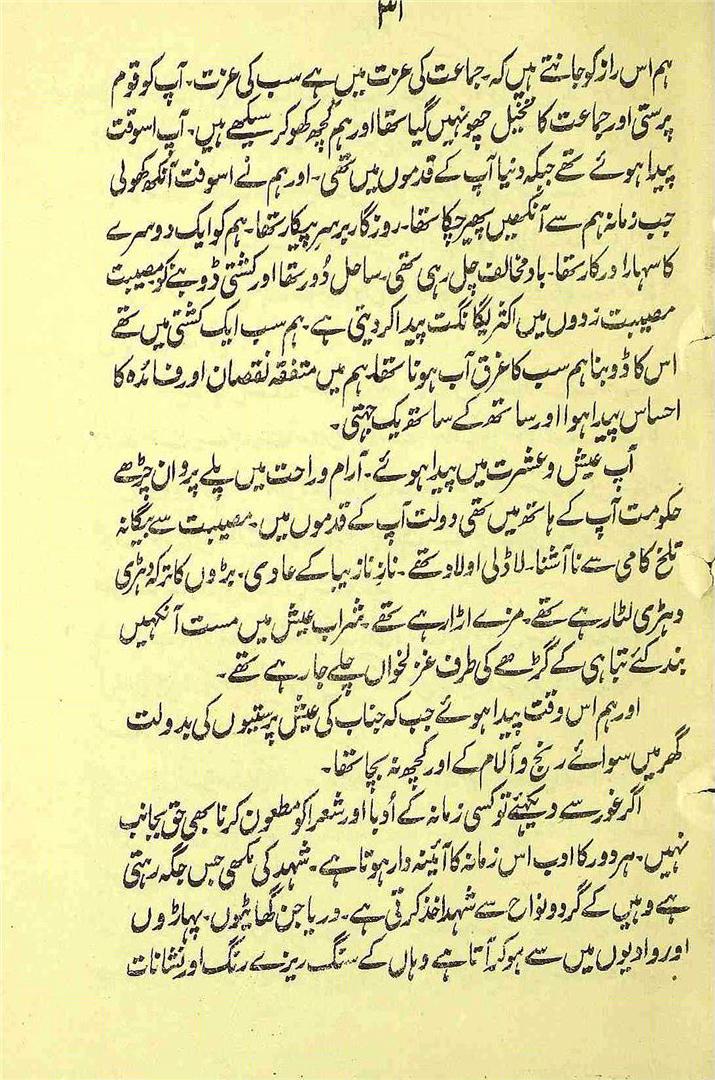 ہم اس راز کو جانتے ہیں کہ۔ جماعت کی عزت میں ہے سب کی عزت۔ آپ کو قوم
پرستی اور جماعت کا تخیل چھو نہیں گیا تھا اور ہم کچھ کھو کر سیکھے ہیں۔ آپ اسوقت
پیدا ہوئے تھے جبکہ دنیا آپ کے قدموں میں تھی۔ اور ہم نے اسوقت آنکھ کھولی
جب زمانہ ہم سے آنکھیں پھیر چکا تھا۔ روزگار برسرِ پیکار تھا۔ ہم کو ایک دوسرے
کا سہارا درکار تھا۔ بادِ مخالف چل رہی تھی۔ ساحل دُور تھا اور کشتی ڈوبنے کو مصیبت
مصیبت زدوں میں اکثر یگانگت پیدا کر دیتی ہے۔ ہم سب ایک کشتی میں تھے
اس کا ڈوبنا ہم سب کا غرق آب ہونا تھا۔ ہم میں متفقہ نقصان اور فائدہ کا
احساس پیدا ہوا اور ساتھ کے ساتھ یک جہتی۔
آپ عیش و عشرت میں پیدا ہوئے۔ آرام و راحت میں پلے پروان چڑھے
حکومت آپ کے ہاتھ میں تھی دولت آپ کے قدموں میں۔ مصیبت سے بیگانہ
تلخ کامی سے نا آشنا۔ لاڈلی اولاد تھے۔ نازِ نازیبا کے عادی۔ بڑوں کا ترکہ دہڑی
دہڑی لٹا رہے تھے۔ مزے اڑا رہے تھے۔ شراب عیش میں مست آنکھیں
بند کئے تباہی کے گڑھے کی طرف غزلخواں چلے جا رہے تھے۔
اور ہم اس وقت پیدا ہوئے جب کہ جناب کی عیش پرستیوں کی بدولت
گھر میں سوائے رنج و آلام کے اور کچھ نہ بچا تھا۔
اگر غور سے دیکھئے تو کسی زمانہ کے اُدبا اور شعرا کو مطعون کرنا بھی حق بجانب
نہیں۔ ہر دور کا ادب اس زمانہ کا آئینہ دار ہوتا ہے۔ شہد کی مکھی جس جگہ رہتی
ہے وہیں کے گرد و نواح سے شہد اخذ کرتی ہے۔ دریا جن گھاٹیوں۔ پہاڑوں
اور وادیوں میں سے ہو کر آتا ہے وہاں کے سنگ ریزے رنگ اور نشانات